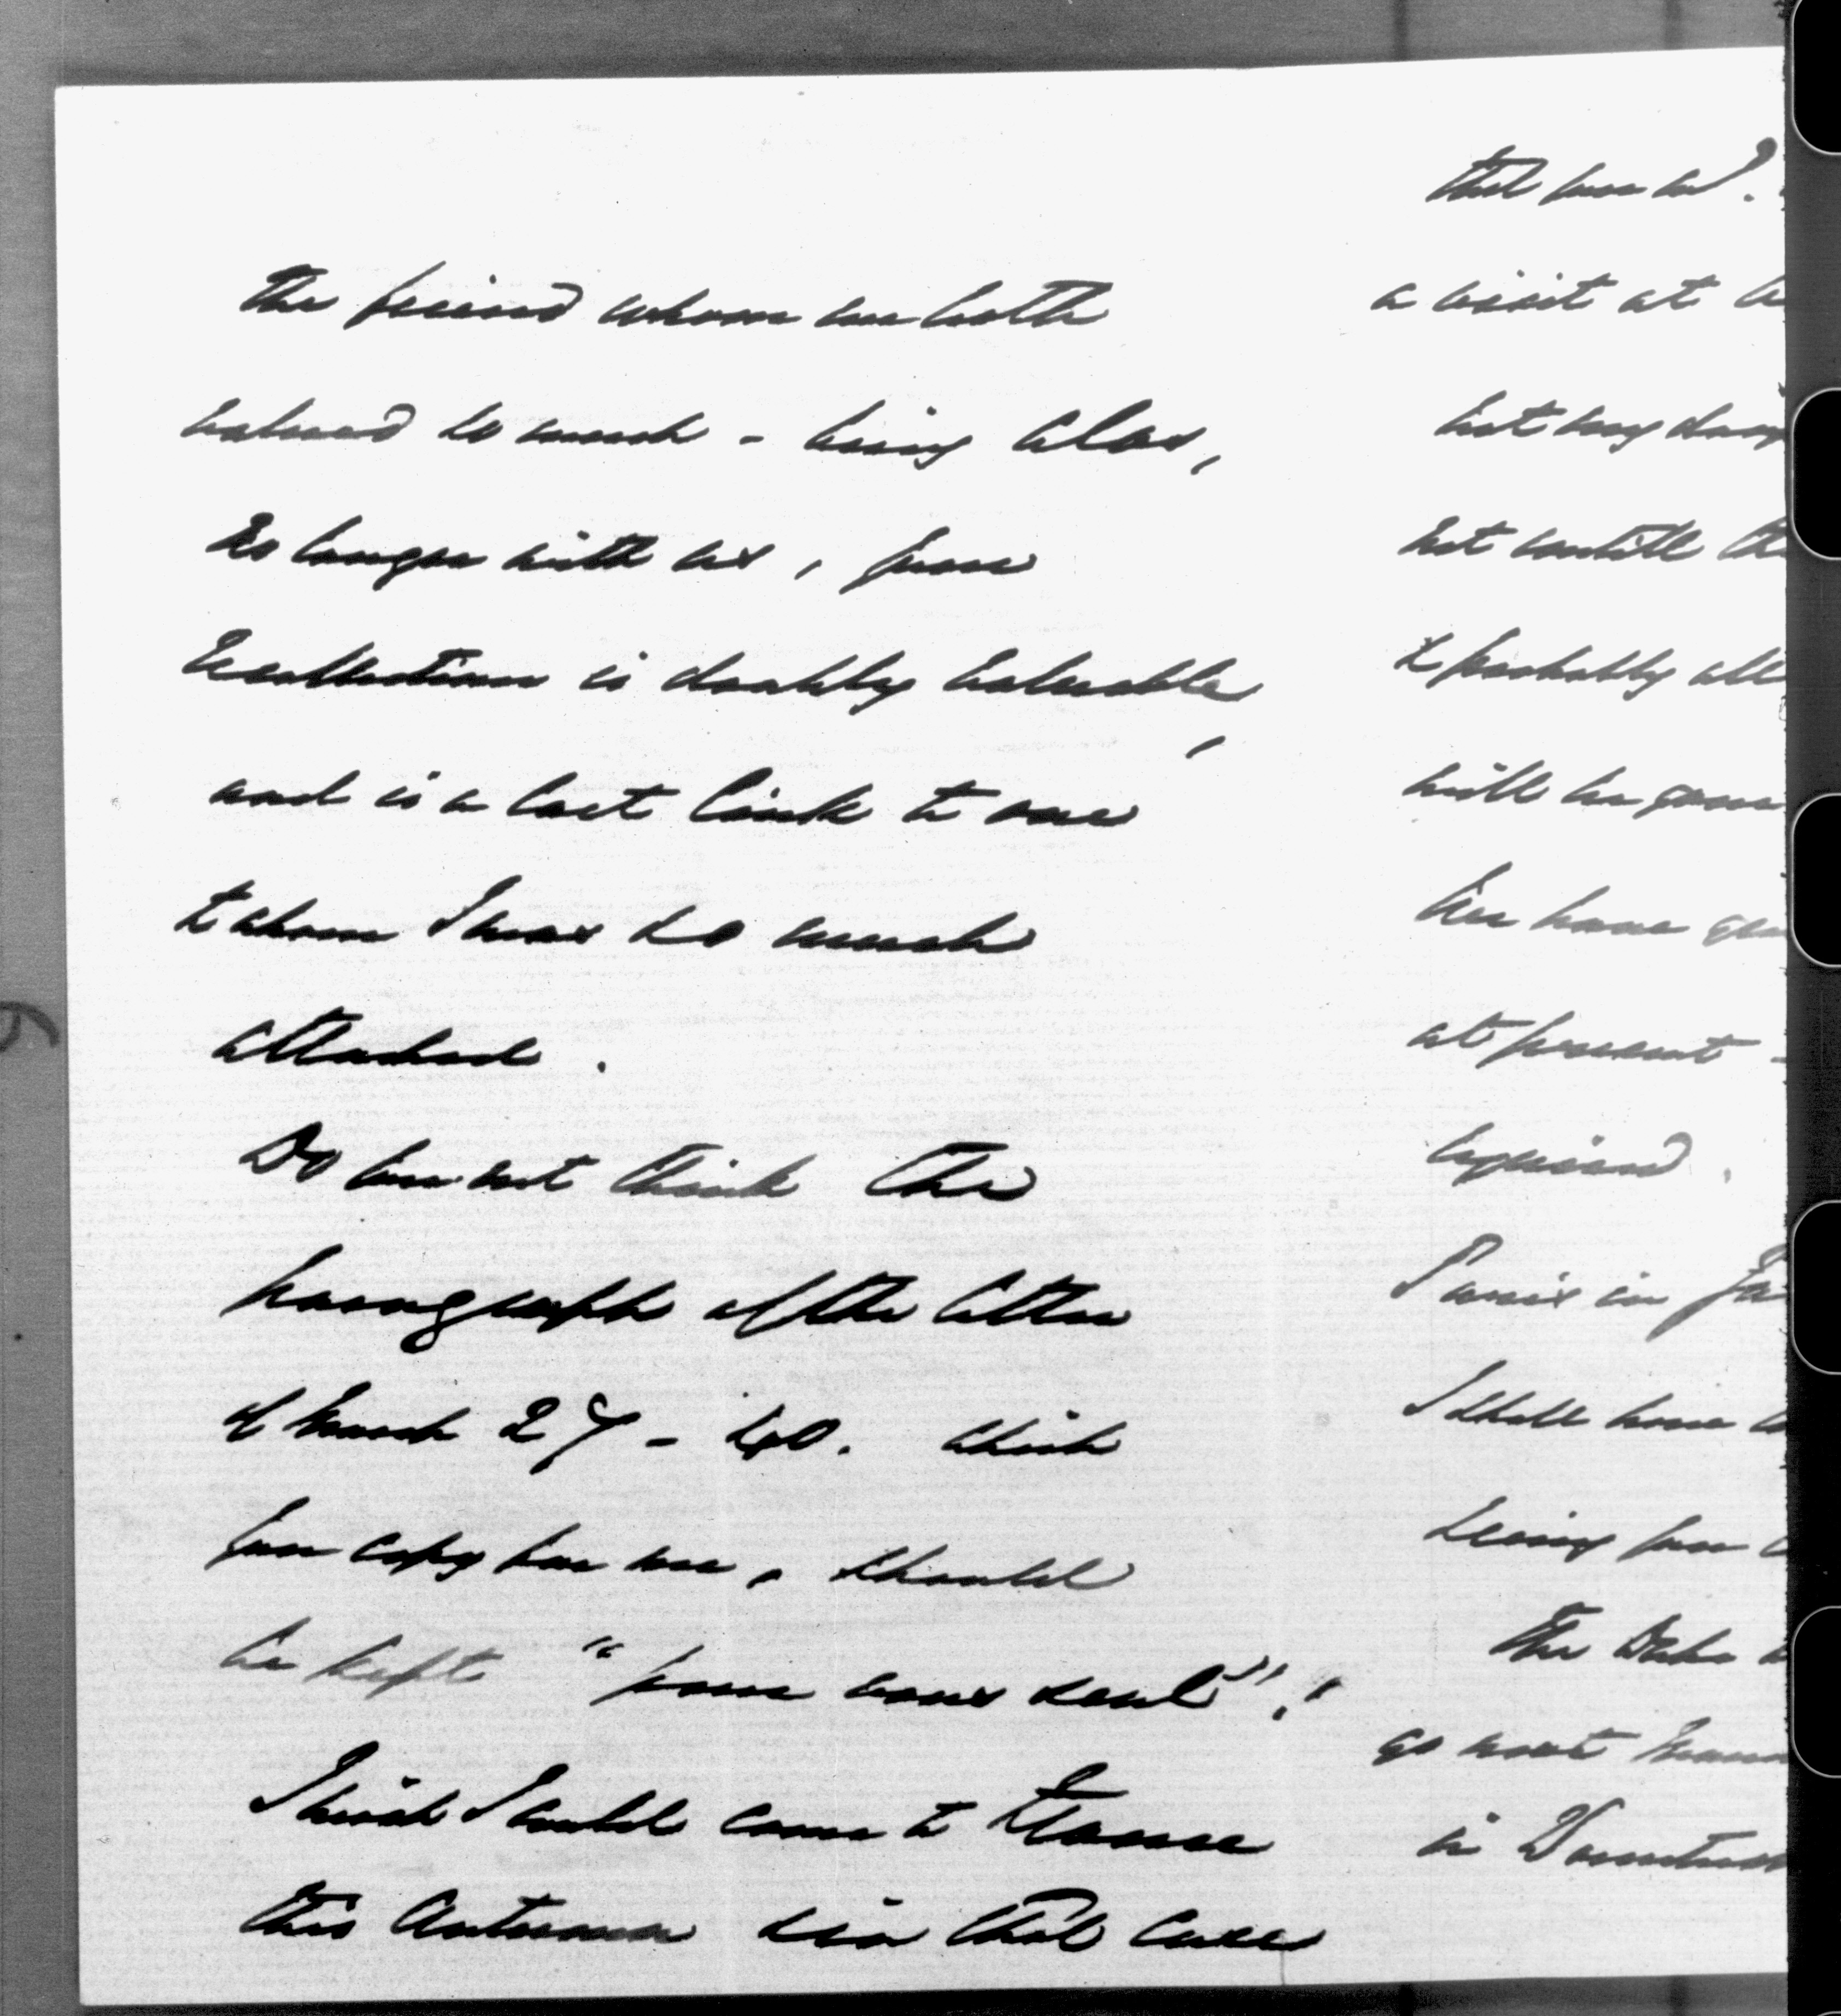 The friend whom we both
valued so much - being alas,
no longer with us, your
recollection is doubly valuable,
and is a last link to one
to whom I was so much
attached.
Do you not think the
paragraph of the letter
of March 27 - 40. which
you copy for me, should
be kept "pour vous seul"!
I wish I could come to
this Autumn in that case
that
a visit at
but my
not until the
& probably all
will be gone
We have
at present -
required.
I was in
I shall have
seeing you
The Duke
go next
in